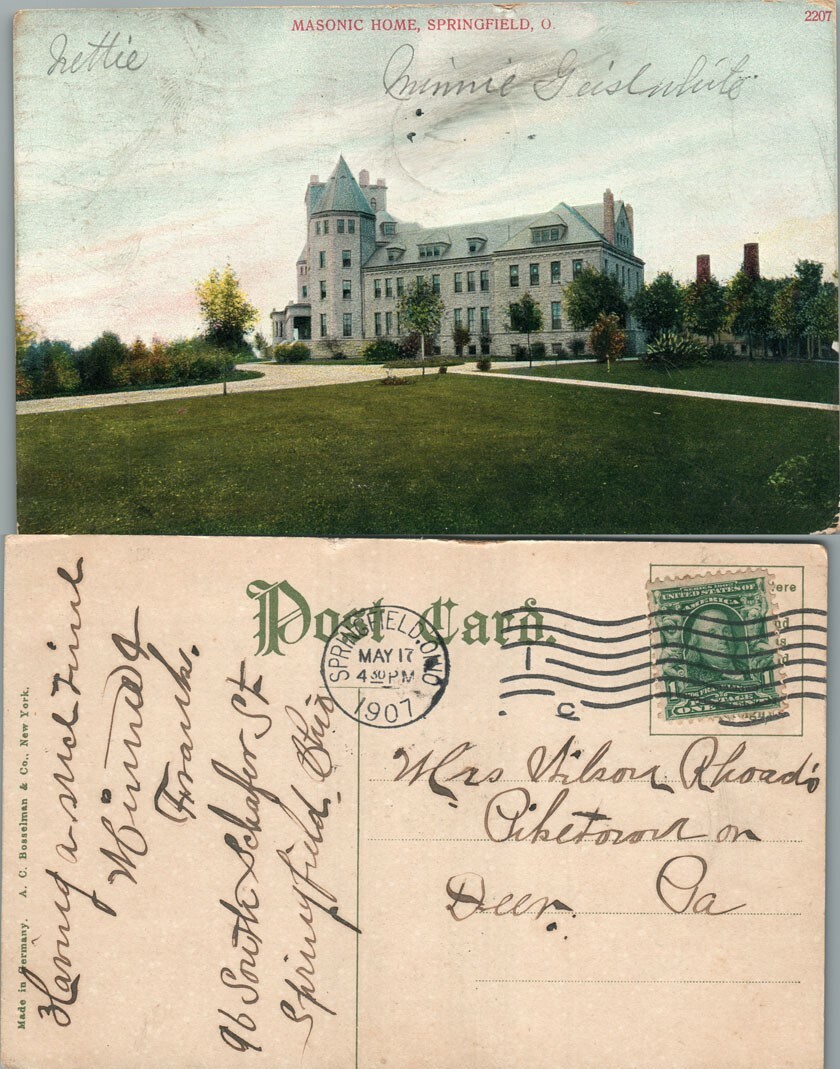 MASONIC HOME, SPRINGFIELD, O.
2207
Nettie
Minnie Geiselwhite
Post Card.
SPRINGFIELD, OHIO
MAY 17
4 30 PM
1907
C
ere
SERIES 1902
UNITED STATES OF
AMERICA
1
1
FRANKLIN
POSTAGE
ONE CENT
Having a nice time
Minnie &
Frank.
96 South Schafer St
Springfield, Ohio
Mrs Wilson Rhoads
Piketown on
Deer. Pa
Made in Germany. A. C. Bosselman & Co., New York.